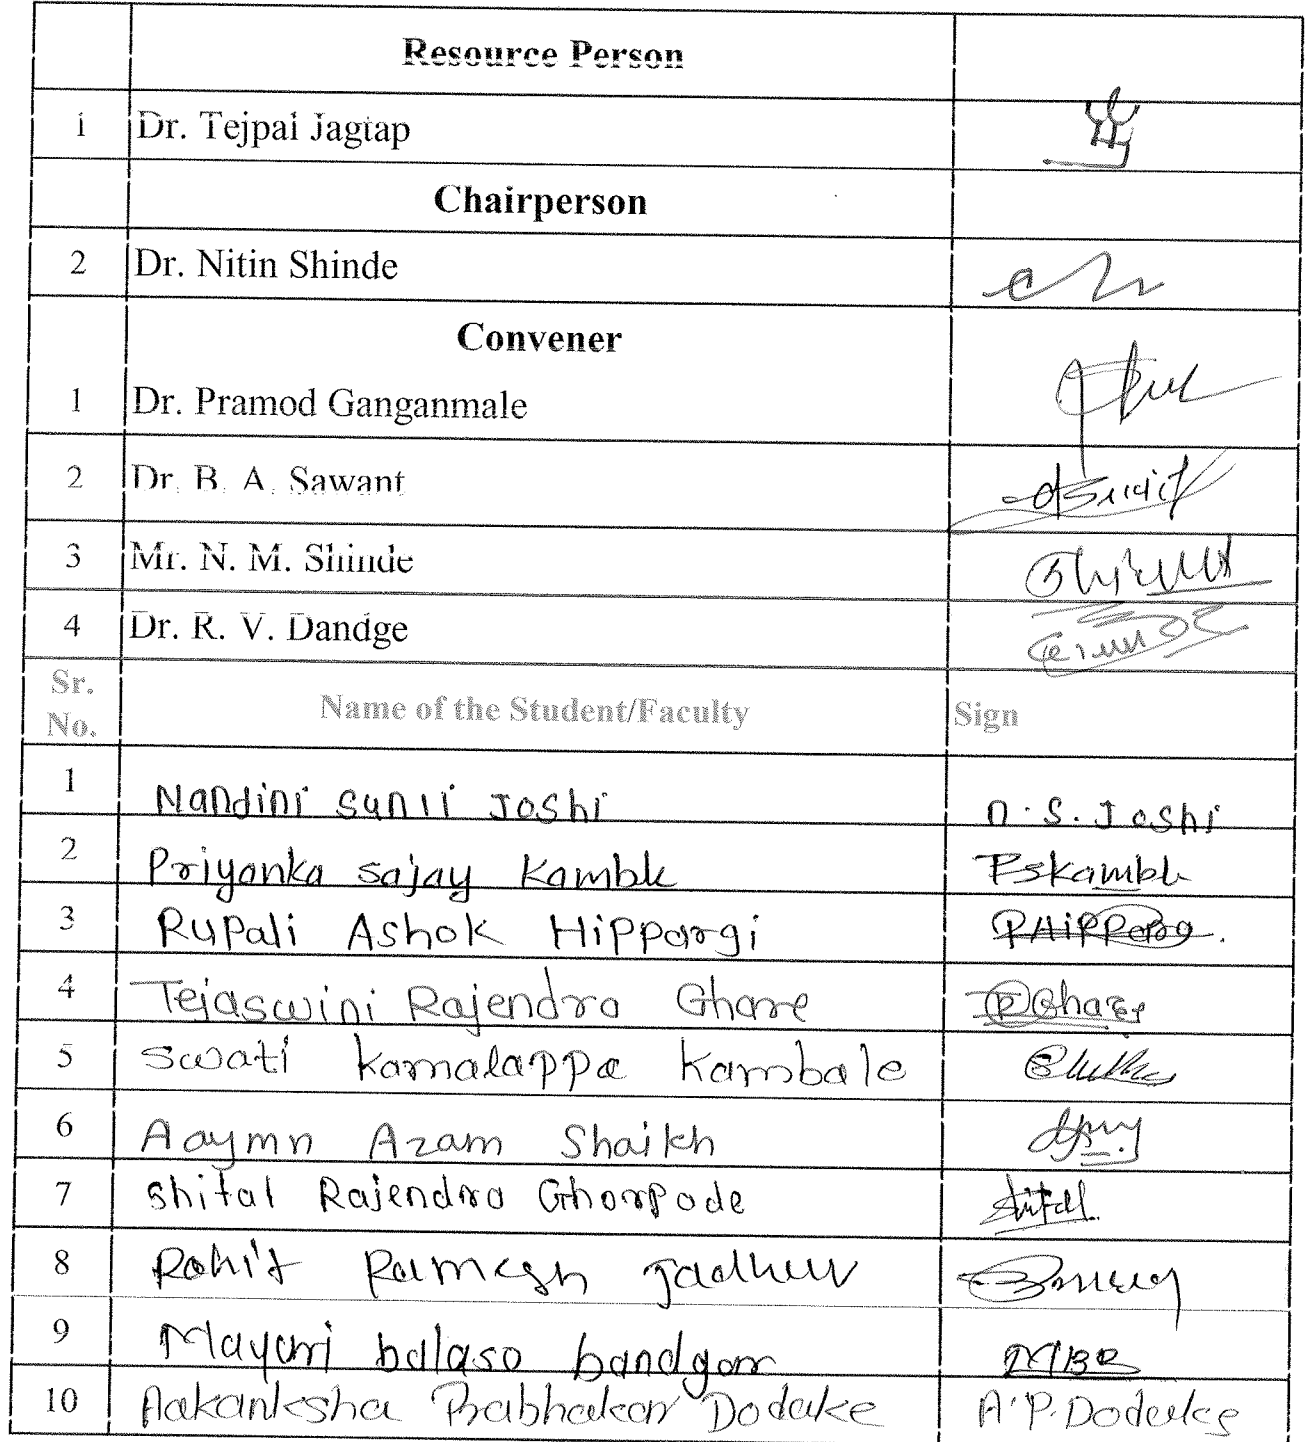 Resource Person
1 Dr. Tejpal Jagtap
Chairperson
2 Dr. Nitin Shinde
Convener
1 Dr. Pramod Ganganmale
2 Dr. B. A. Sawant
3 Mr. N. M. Shinde
4 Dr. R. V. Dandge
Sr. No. Name of the Student/Faculty Sign
1 Nandini Sunil Joshi N. S. Joshi
2 Priyanka Sajay Kamble PSKamble
3 Rupali Ashok Hippargi
4 Tejaswini Rajendra Ghare
5 Swati Kamalappa Kambale
6 Aaymn Azam Shaikh
7 Shital Rajendra Ghorpade Shital
8 Rohit Ramesh Jadhav
9 Mayuri balaso bandgar MBB
10 Aakanksha Prabhakar Dodake A.P.Dodake